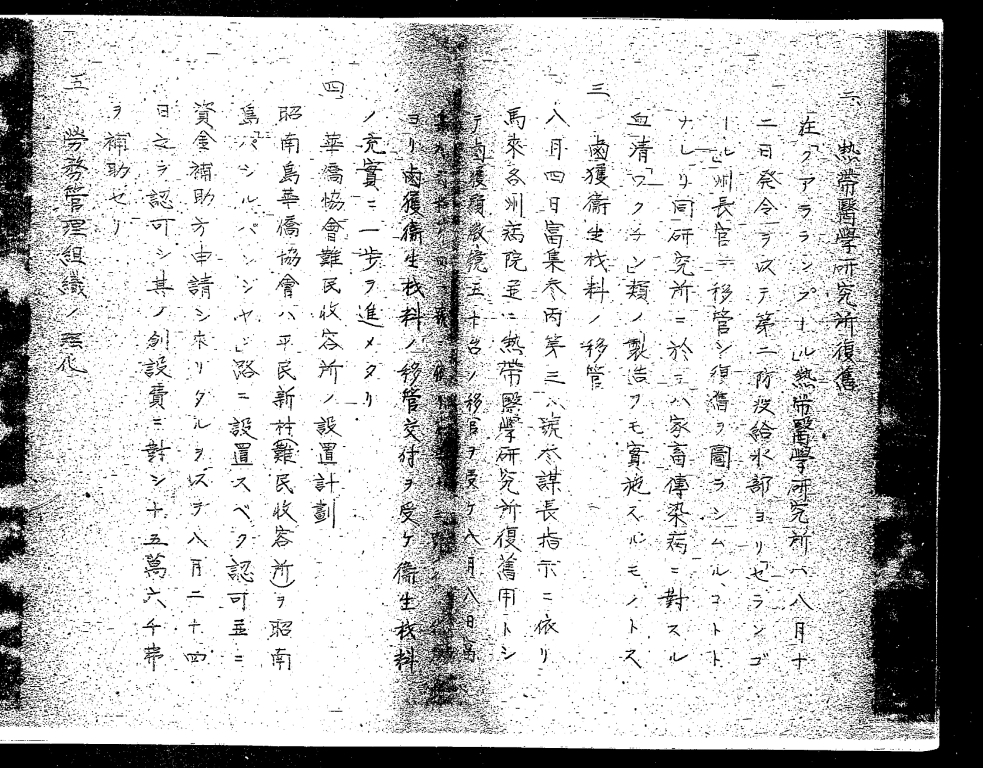 二、熱帶醫學研究所復舊
在「クアラランプール」熱帶醫學研究所ハ八月十
二日発令ヲ以テ第二防疫給水部ヨリ「セランゴ
ール」州長官ニ移管シ復舊ヲ圖ラシムルコトト
ナレリ同研究所ニ於テハ家畜傳染病ニ對スル
血清「ワクチン」類ノ製造ヲモ實施スルモノトス
三 鹵獲衞生材料ノ移管
八月四日富集参丙第三八號参謀長指示ニ依リ
馬來各州病院並ニ熱帶醫學研究所復舊用トシ
テ鹵獲顯微鏡五十台ノ移管ヲ受ケ八月八日富
ヨリ鹵獲衞生材料ノ移管交付ヲ受ケ衞生材料
ノ充實ニ一歩ヲ進メタリ
四 華僑協會難民收容所ノ設置計劃
昭南島華僑協會ハ平民新村(難民收容所)ヲ昭南
島「パシルパンジャン」路ニ設置スベク認可並ニ
資金補助方申請シ來リタルヲ以テ八月二十四
日之ヲ認可シ其ノ創設費ニ對シ十五萬六千弗
ヲ補助セリ
五 勞務管理組織ノ強化